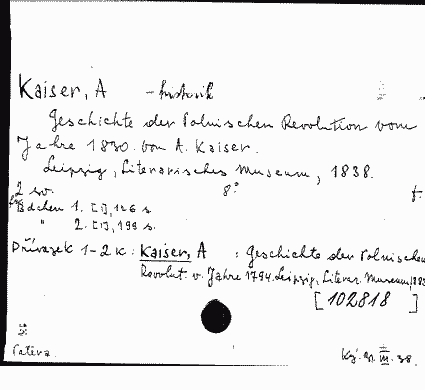 Kaiser, A - historik
Geschichte der Polnischen Revolution vom
Jahre 1830. von A. Kaiser.
Leipzig, Literarisches Museum, 1838.
2 sv. 8° f.
Bdchen 1. [I], 126 s.
" 2. [I], 198 s.
Přívazek 1-2 k: Kaiser, A : Geschichte der Polnischen
Revolut. v. Jahre 1794. Leipzig, Literar. Museum, 183
[102818]
Patera.
III. 38.